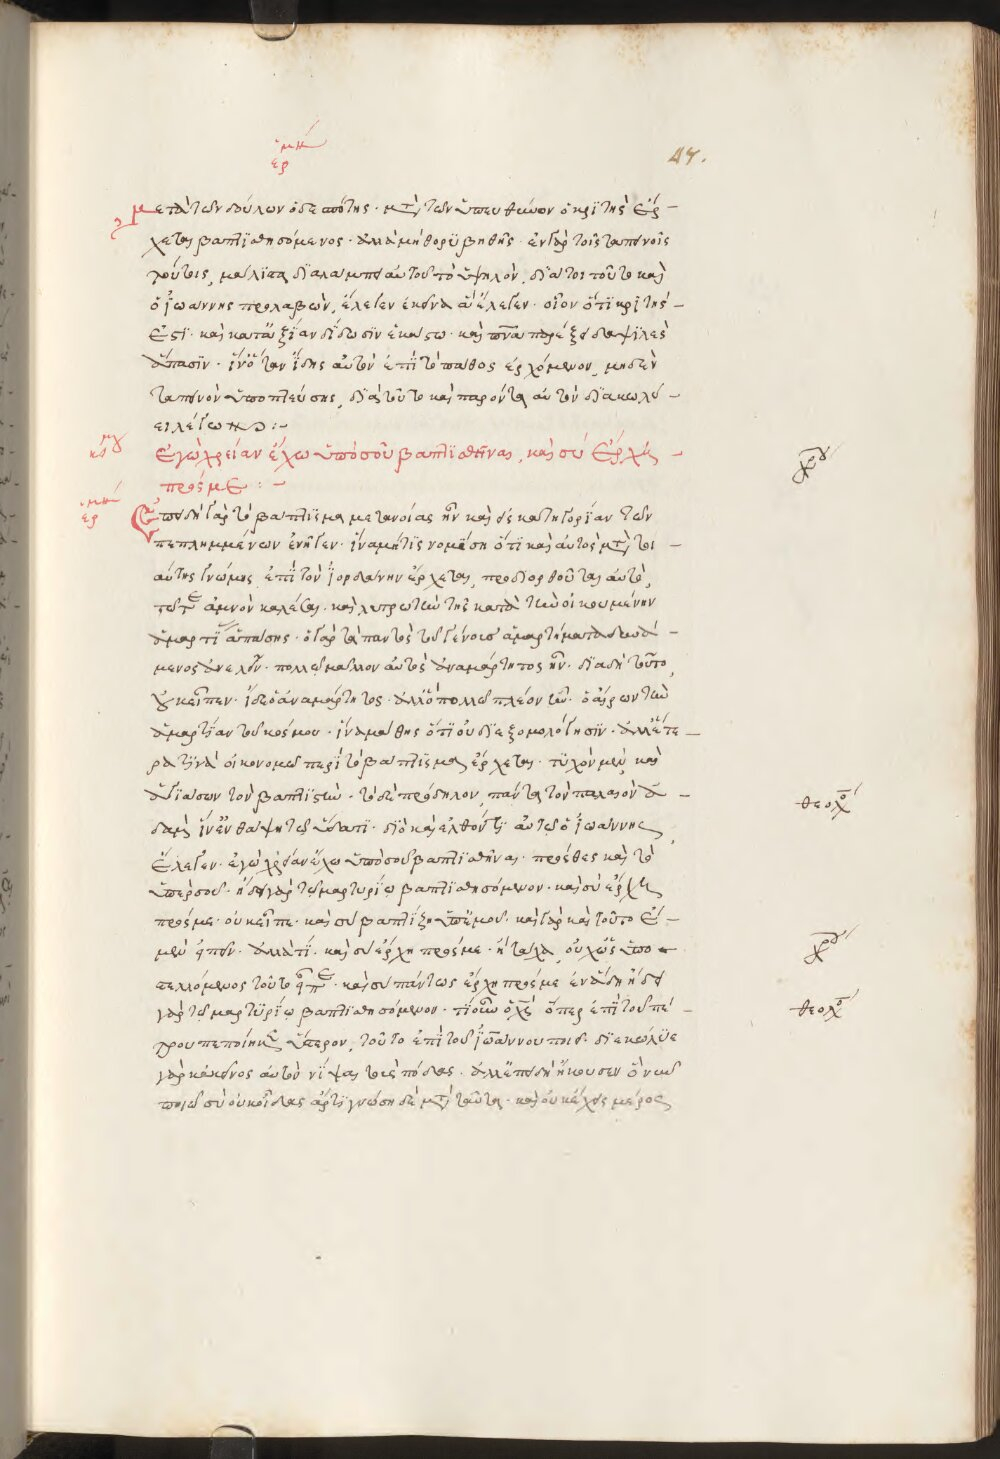 ἑρμη
47.
Μετὰ τῶν δούλων ὁ δεσπότης· μετὰ τῶν ὑπευθύνων ὁ κριτὴς ἔρ-
χεται βαπτισθησόμενος· ἀλλὰ μὴ θορυβηθῇς· ἐν γὰρ τοῖς ταπεινοῖς
τούτοις, μάλιστα διαλάμπει αὐτοῦ τὸ ὑψηλὸν, διά τοι τοῦτο καὶ
ὁ ἰωάννης προλαβὼν, ἔλεγεν ἐκεῖνα ἃ ἔλεγεν· οἷον ὅτι κριτής
ἐστι· καὶ κατ' ἀξίαν δίδωσιν ἑκάστω· καὶ πνα παρέξει δαψιλὲς
ἅπασιν· ἵν' ὅταν ἴδης αὐτὸν ἐπὶ τὸ πάθος ἐρχόμενον, μηδὲν
ταπεινὸν ὑποπτεύσης, διὰ τοῦτο καὶ παρόντα αὐτὸν διακωλύ-
ει λέγων:-
Ἐγὼ χρείαν ἔχω ὑπὸ σοῦ βαπτισθῆναι, καὶ σὺ ἔρχη
πρός με:-
χρυ
ἑρμη
Ἐπειδὴ γὰρ τὸ βάπτισμα μετανοίας ἦν καὶ εἰς κατηγορίαν τῶν
πεπλημμένων ἐνῆγεν· ἵνα μήτις νομίση ὅτι καὶ αὐτὸς μετὰ τοι
αύτης γνώμης ἐπὶ τὸν ἰορδάνην ἔρχεται, προδιορθοῦται αὐτὸ,
τῶ τε ἀμνὸν καλέσαι· καὶ λυτρωτὴν τῆς κατὰ τὴν οἰκουμένην
ἁμαρτί ἁπάσης· ὁ γὰρ τὰ παντὸς τοῦ γένους ἁμαρτήματα δυνά-
μενος ἀνελεῖν· πολλῶ μᾶλλον αὐτὸς ἀναμάρτητος ἦν· διὰ δὴ τοῦτο,
οὐκ εἶπεν· ἴδε ὁ ἀναμάρτητος· ἀλλ' ὃ πολλῶ πλέον ἦν· ὁ αἴρων τὴν
ἁμαρτίαν τοῦ κόσμου· ἵνα μάθης ὅτι οὐ δι' ἐξομολόγησιν· ἀλλ' ἕτε-
ρά τινα οἰκονομῶν περὶ τὸ βάπτισμα ἔρχεται· τυχὸν μὲν καὶ
ἁγιάσων τὸν βαπτιστὴν· τὸ δὲ πρόδηλον, πάντα τὸν παλαιὸν ἀ-
θεολο
δὰμ ἵν' ἐνθάψη τῶ ὕδατι· διὸ καὶ ἐλθόντι αὐτῶ ὁ ἰωάννης
ἔλεγεν· ἐγὼ χρείαν ἔχω ὑπὸ σοῦ βαπτισθῆναι· πρόσθες καὶ τὸ
ὑπὲρ σοῦ· ἤδει γὰρ τῶ μαρτυρίω βαπτισθησόμενον· καὶ σὺ ἔρχη
πρός με· οὐκ εἶπε· καὶ σὺ βαπτίζη ὑπ' ἐμοῦ· καὶ γὰρ καὶ τοῦτο ἔ-
μελεν εἰπεῖν· ἀλλὰ τί· καὶ σὺ ἔρχη πρός με· ἢ τάχα, οὐχ ὡς ὑπο
χρυ
στελλόμενος τοῦτο εἶπε· καὶ σὺ πάντως ἔρχη πρός με ἐν ἅδη ἤδει
γὰρ τῶ μαρτυρίω βαπτισθησόμενος· τί οὖν ὁ χς ὅπερ ἐπὶ τοῦ πέ-
θεολο
τρου πεποίηκεν ὕστερον, τοῦτο ἐπὶ τοῦ ἰωάννου ποιεῖ· διεκώλυε
γὰρ κἀκεῖνος αὐτὸν νίψαι τοὺς πόδας· ἀλλ' ἐπειδὴ ἤκουσεν ὃ ἐγὼ
ποιῶ σὺ οὐκ οἶδας ἄρτι γνώση δὲ μετὰ ταῦτα· καὶ οὐκ ἔχεις μέρος